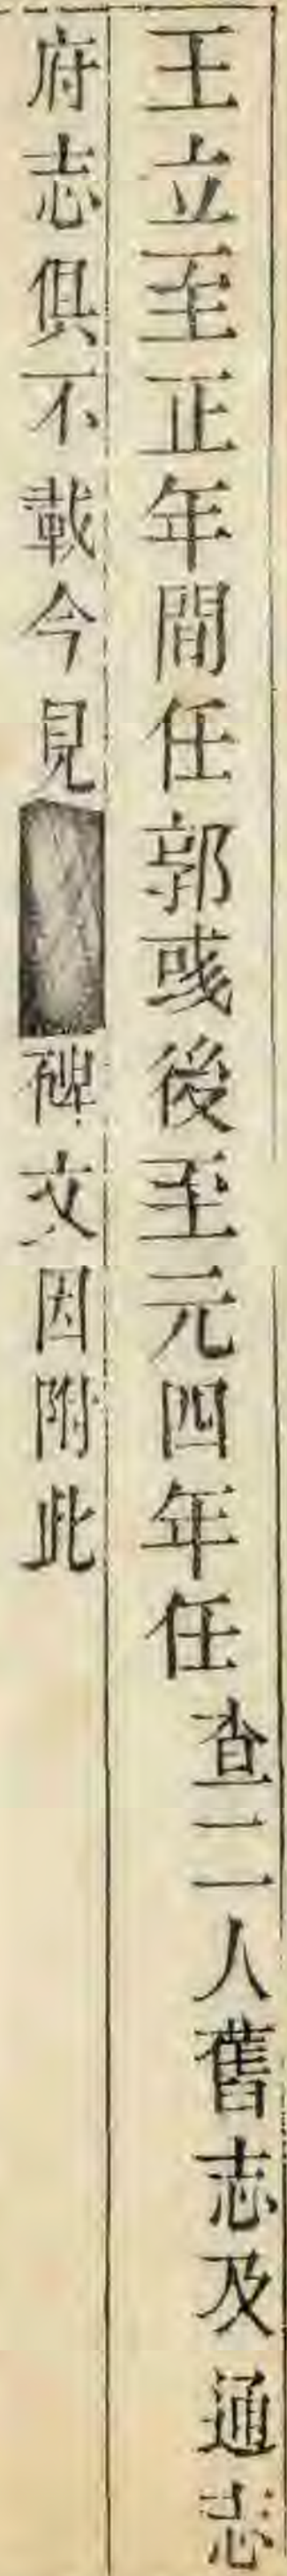 王立至正年間任郭彧後至元四年任查二人舊志及通志
府志俱不載今見碑文因附此